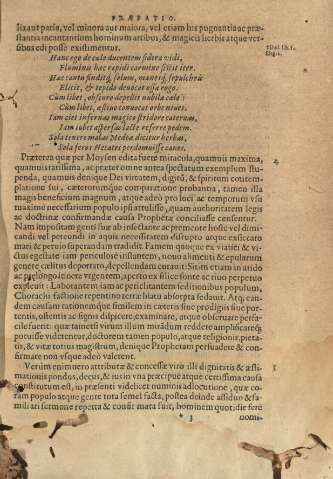 PRÆFATIO.
lizaut paria, vel minora aut maiora, vel etiam his pugnantia ac præ-
stantia incantantium hominum artibus, & magicis herbis atque ver-
sibus edi posse existimentur.
Tibul. lib. 1.
Eleg. 2.
Hanc ego de cælo ducentem sidera vidi,
Fluminis hæc rapidi carmine sistit iter.
Hæc cantu finditq́; solum, maneisq́; sepulchris
Elicit, & tepido devocat ossa rogo.
Cùm libet, obscuro depellit nubila cælo:
Cùm libet, æstivo convocat orbe nives.
Iam ciet infernas magico stridore catervas,
Iam iubet aspersas lacte referre pedem.
Sola tenere malas Medeæ dicitur herbas,
Sola feros Hecates perdomuisse canes.
Præterea quæ per Moysen edita fuere miracula, quamuis maxima,
quamuis rarissima, ac præter omne antea spectatum exemplum stu-
penda, quamuis denique Dei virtutem, digitū, & spiritum contem-
platione sui, cæterorumque comparatione probantia, tamen illa
magis beneficium magnum, atque adeò pro loci ac temporum vsu
maximè necessarium populo ipsi attulisse, quàm authoritatem legis
ac doctrinæ confirmandæ causa Prophetæ conciliasse censentur.
Nam impositam genti suæ ab insectante ac premente hoste vel dimi-
candi vel pereundi in aquis necessitatem disrupto atque exsiccato
mari & peruio superandam tradidit. Famem quoque ex viatici & vi-
ctus egestate iam periculosè instantem, nouo alimenti & epularum
genere cælitus deportato, depellendam curauit: Sitim etiam in æstido
ac prælongo itinere vrgentem, aperto ex silice fonte ac riuo perpetuo
expleuit: Laborantem iam ac periclitantem seditionibus populum,
Chorachi factione repentino terræ hiatu absorpta sedauit. Atq; ean-
dem causam rationemque similem in cæteris siue prodigiis siue por-
tentis, ostentis ac signis dispicere, examinare, atque obseruare persa-
cile fuerit: quæ tametsi virum illum mirādum reddere amplificareq́;
potuisse viderentur, doctorem tamen populo, atque religionis, pieta-
tis, & vitæ totius magistrum, denique Prophetam persuadere & con-
firmare non vsque adeò valerent.
Verùm enimuero attributæ & concessæ viro illi dignitatis & æsti-
mationis pondus, decus, & ius in vna præcipuè atque certissima causa
constitutum est, in præsenti videlicet numinis adlocutione, quæ co-
ram populo atque gente tota semel facta, postea deinde assiduo & fa-
miliari sermone repetita & confirmata fuit, hominem quotidie ferè
* 3
nomi-